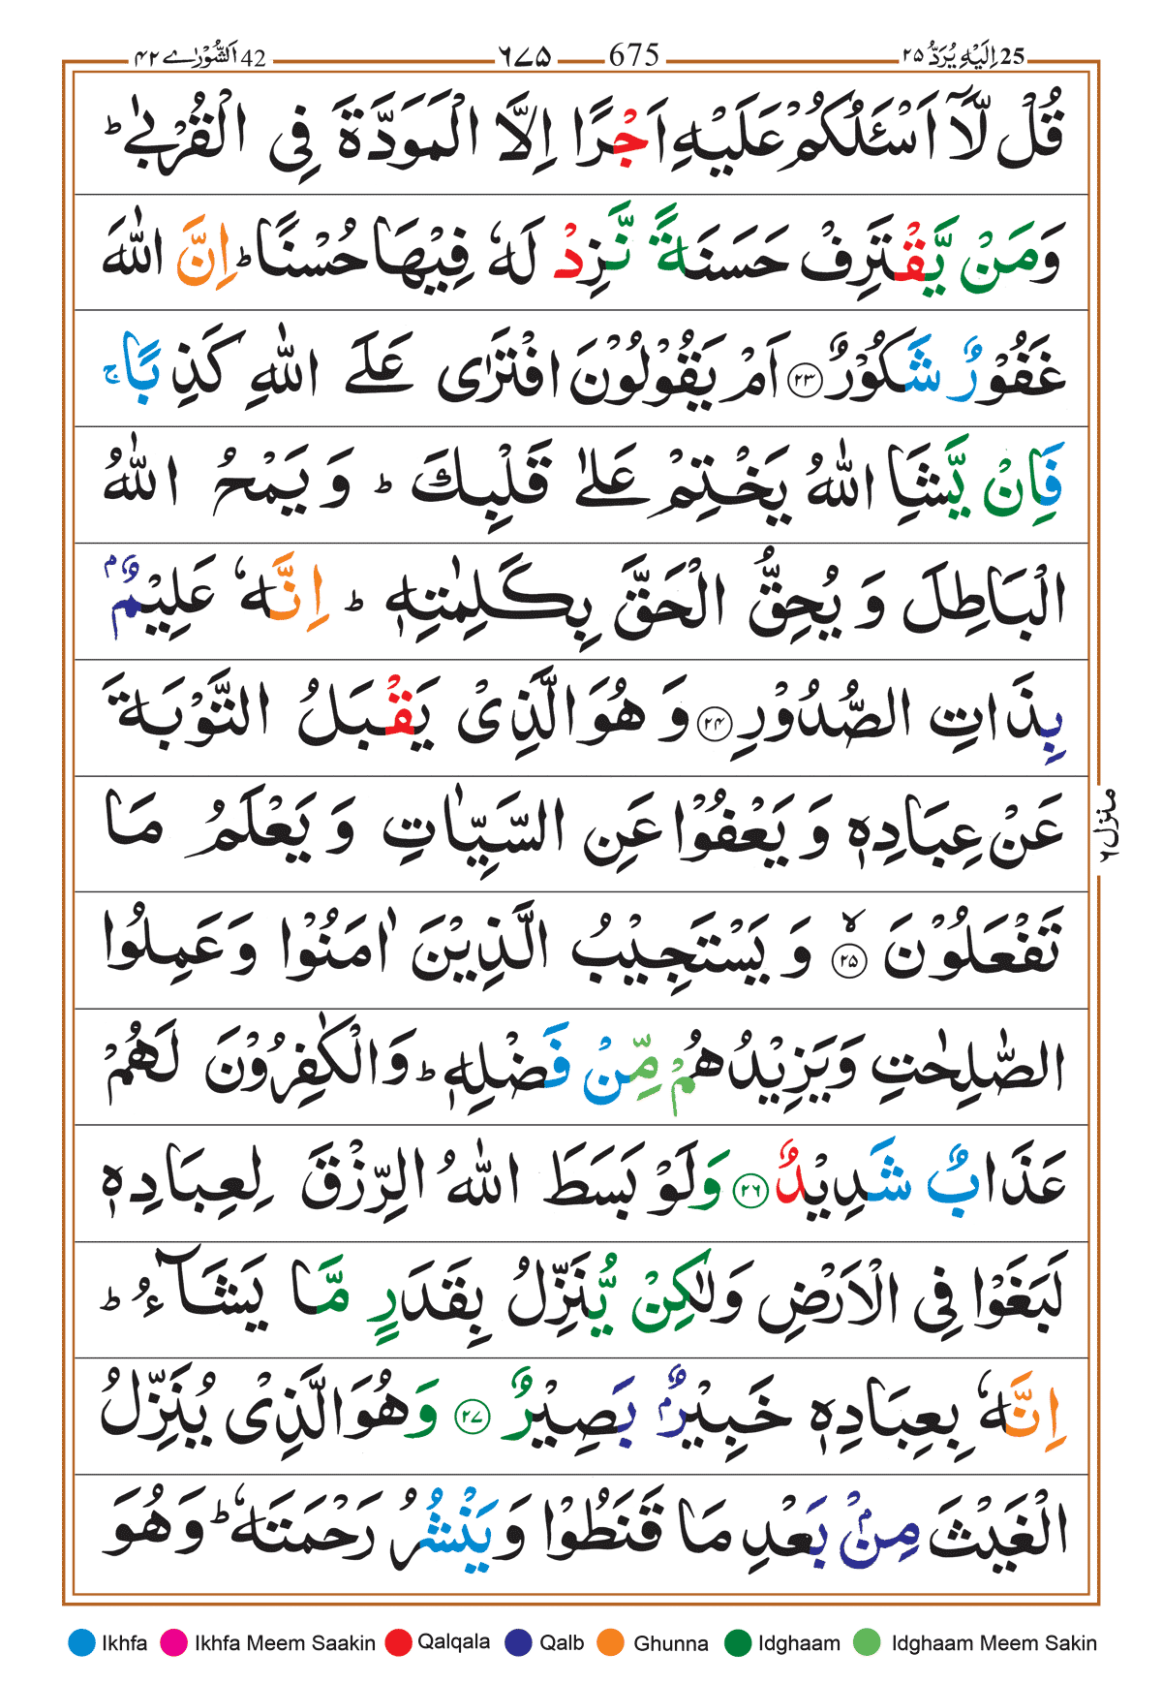 25 اِلَیْهِ یُرَدُّ ۲۵ 675 ٦٧۵ 42 اَلشُّوْرٰے ۴۲
قُلْ لَّاۤ اَسْـَٔلُكُمْ عَلَیْهِ اَجْرًا اِلَّا الْمَوَدَّةَ فِی الْقُرْبٰی ؕ
وَمَنْ یَّقْتَرِفْ حَسَنَةً نَّزِدْ لَهٗ فِیْهَا حُسْنًا ؕ اِنَّ اللّٰهَ
غَفُوْرٌ شَكُوْرٌ ۲۳ اَمْ یَقُوْلُوْنَ افْتَرٰی عَلَی اللّٰهِ كَذِبًا ۚ
فَاِنْ یَّشَاِ اللّٰهُ یَخْتِمْ عَلٰی قَلْبِكَ ؕ وَ یَمْحُ اللّٰهُ
الْبَاطِلَ وَ یُحِقُّ الْحَقَّ بِكَلِمٰتِهٖ ؕ اِنَّهٗ عَلِیْمٌۢ
بِذَاتِ الصُّدُوْرِ ۲۴ وَ هُوَ الَّذِیْ یَقْبَلُ التَّوْبَةَ
عَنْ عِبَادِهٖ وَ یَعْفُوْا عَنِ السَّیِّاٰتِ وَ یَعْلَمُ مَا
تَفْعَلُوْنَ ۙ ۲۵ وَ یَسْتَجِیْبُ الَّذِیْنَ اٰمَنُوْا وَعَمِلُوا
الصّٰلِحٰتِ وَیَزِیْدُهُمْ مِّنْ فَضْلِهٖ ؕ وَالْكٰفِرُوْنَ لَهُمْ
عَذَابٌ شَدِیْدٌ ۲۶ وَلَوْ بَسَطَ اللّٰهُ الرِّزْقَ لِعِبَادِهٖ
لَبَغَوْا فِی الْاَرْضِ وَلٰكِنْ یُّنَزِّلُ بِقَدَرٍ مَّا یَشَآءُ ؕ
اِنَّهٗ بِعِبَادِهٖ خَبِیْرٌۢ بَصِیْرٌ ۲۷ وَهُوَ الَّذِیْ یُنَزِّلُ
الْغَیْثَ مِنْۢ بَعْدِ مَا قَنَطُوْا وَیَنْشُرُ رَحْمَتَهٗ ؕ وَهُوَ
منزل ٦
Ikhfa Ikhfa Meem Saakin Qalqala Qalb Ghunna Idghaam Idghaam Meem Sakin